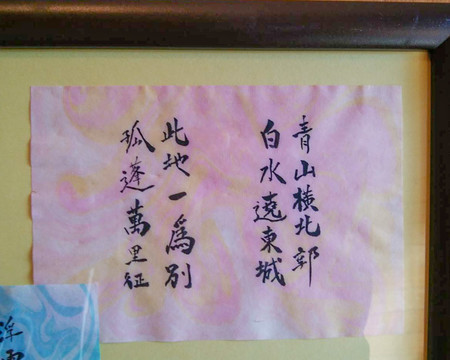 青山橫北郭
白水遶東城
此地一為別
孤蓬萬里征
浮雲